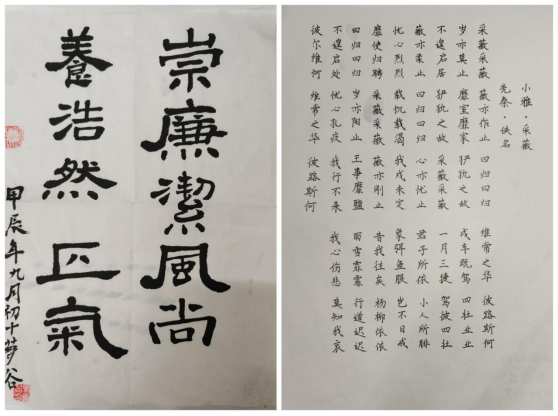 崇廉潔風尚
養浩然正氣
甲辰年九月初十夢谷
小雅·采薇
先秦·佚名
采薇采薇 薇亦作止 曰归曰归
岁亦莫止 靡室靡家 猃狁之故
不遑启居 猃狁之故 采薇采薇
薇亦柔止 曰归曰归 心亦忧止
忧心烈烈 载饥载渴 我戍未定
靡使归聘 采薇采薇 薇亦刚止
曰归曰归 岁亦阳止 王事靡盬
不遑启处 忧心孔疚 我行不来
彼尔维何 维常之华 彼路斯何
维常之华 彼路斯何
戎车既驾 四牡业业
一月三捷 驾彼四牡
君子所依 小人所腓
象弭鱼服 岂不日戒
昔我往矣 杨柳依依
雨雪霏霏 行道迟迟
我心伤悲 莫知我哀